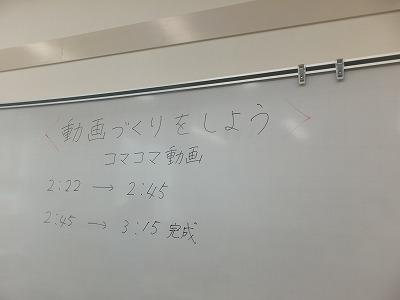 〈動画づくりをしよう〉
コマコマ動画
2:22 → 2:45
2:45 → 3:15 完成